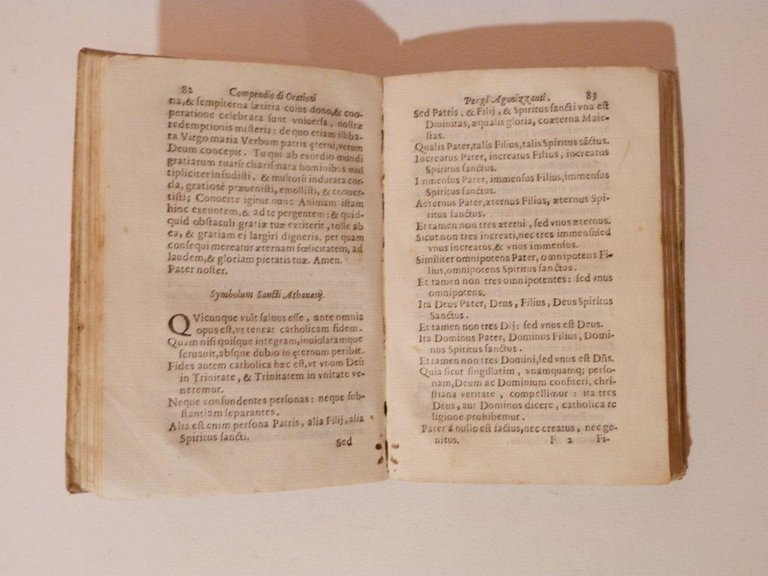 82 Compendio di Orationi
na, & sempiterna lætitia cuius dono, & coo-
peratione celebrata sunt vniuersa, nostræ
redemptionis misteria: de quo etiam illiba-
ta Virgo maria Verbum patris ęterni, verum
Deum concepit. Tu qui ab exordio mundi
gratiarum tuarū charismata hominibus mul
tipliciter infudisti, & multorū indurata cor-
da, gratiosè præuenisti, emollisti, & conuer-
tisti; Conuerte igitur nunc Animam istam
hinc exeuntem, & ad te pergentem: & quid-
quid obstaculi gratiæ tuæ extiterit, tolle ab
ea, & gratiam ei largiri digneris, per quam
consequi mereatur æternam fœlicitatem, ad
laudem, & gloriam pietatis tuæ. Amen.
Pater noster.
Symbolum Sancti Athanasij.
QVicunque vult saluus esse, ante omnia
opus est, vt teneat catholicam fidem.
Quam nisi quisque integram, inuiolatamque
seruauit, absque dubio in ęternum peribit.
Fides autem catholica hæc est, vt vnum Deū
in Trinitate, & Trinitatem in vnitate ve-
neremur.
Neque confundentes personas: neque sub-
stantiam separantes.
Alia est enim persona Patris, alia Filij, alia
Spiritus sancti.
Sed
Per gl' Agonizzanti. 83
Sed Patris, & Filij, & Spiritus sancti vna est
Diuinitas, æqualis gloria, coæterna Maie-
stas.
Qualis Pater, talis Filius, talis Spiritus sāctus.
Increatus Pater, increatus Filius, increatus
Spiritus sanctus.
Immensus Pater, immensus Filius, immensus
Spiritus sanctus.
Aeternus Pater, æternus Filius, æternus Spi-
ritus sanctus.
Et tamen non tres æterni, sed vnus æternus.
Sicut non tres increati, nec tres immensi: sed
vnus increatus, & vnus immensus.
Similiter omnipotens Pater, omnipotens Fi-
lius, omnipotens Spiritus sanctus.
Et tamen non tres omnipotentes: sed vnus
omnipotens.
Ita Deus Pater, Deus, Filius, Deus Spiritus
Sanctus.
Et tamen non tres Dij: sed vnus est Deus.
Ita Dominus Pater, Dominus Filius, Domi-
nus Spiritus sanctus.
Et tamen non tres Domini, sed vnus est Dn̄s.
Quia sicut singillatim, vnamquamq; perso-
nam, Deum ac Dominum confiteri, chri-
stiana veritate, compellimur: ita tres
Deus, aut Dominos dicere, catholica re
ligione prohibemur.
Pater à nullo est factus, nec creatus, nec ge-
nitus. F 2 Fi-